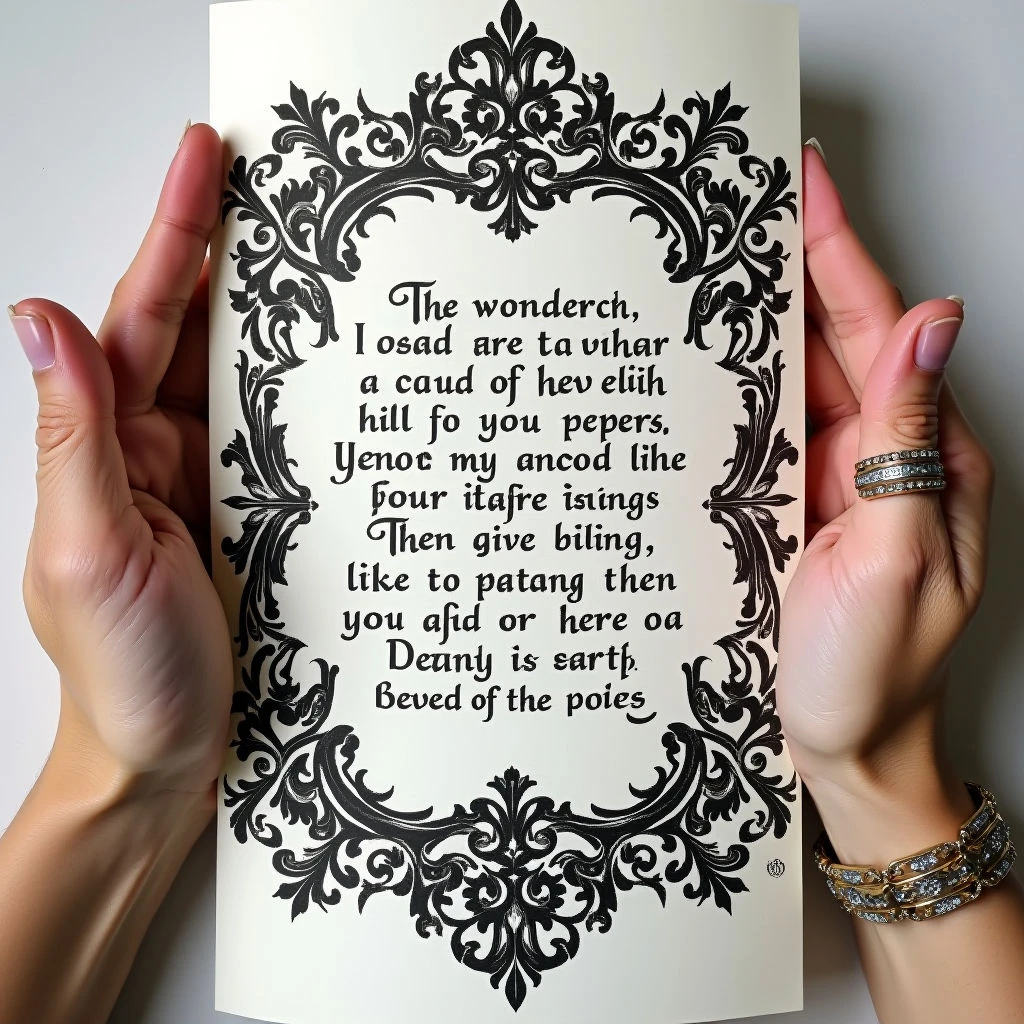 The wonderch,
I osad are ta vihar
a caud of hev eliih
hill fo you pepers.
Yenoc my ancod lihe
four itafre isiings
Then give biling,
like to patang then
you afid or here oa
Deanly is earth.
Beved of the poies